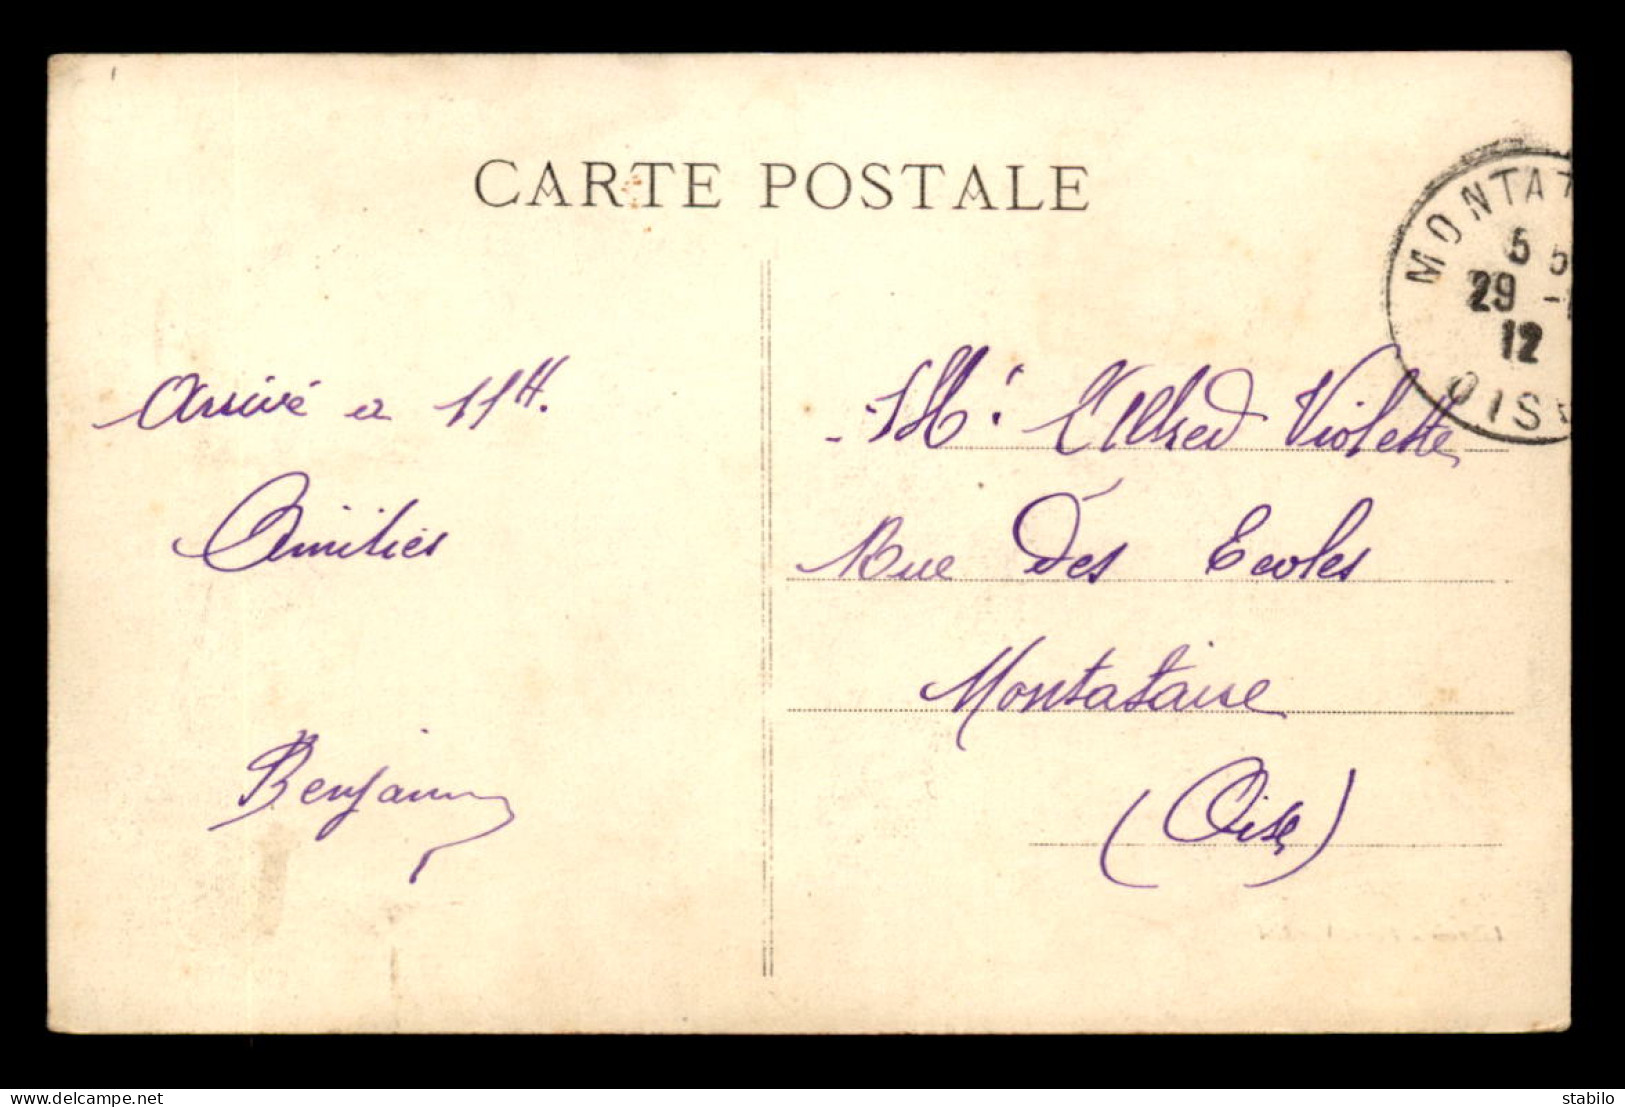 CARTE POSTALE
MONTAT
5 5
29 -1
12
OISE
Arrivé a 11H.
Amitiés
Benjamin
Mr Alfred Violette
Rue des Ecoles
Montataire
(Oise)
www.delcampe.net
stabilo